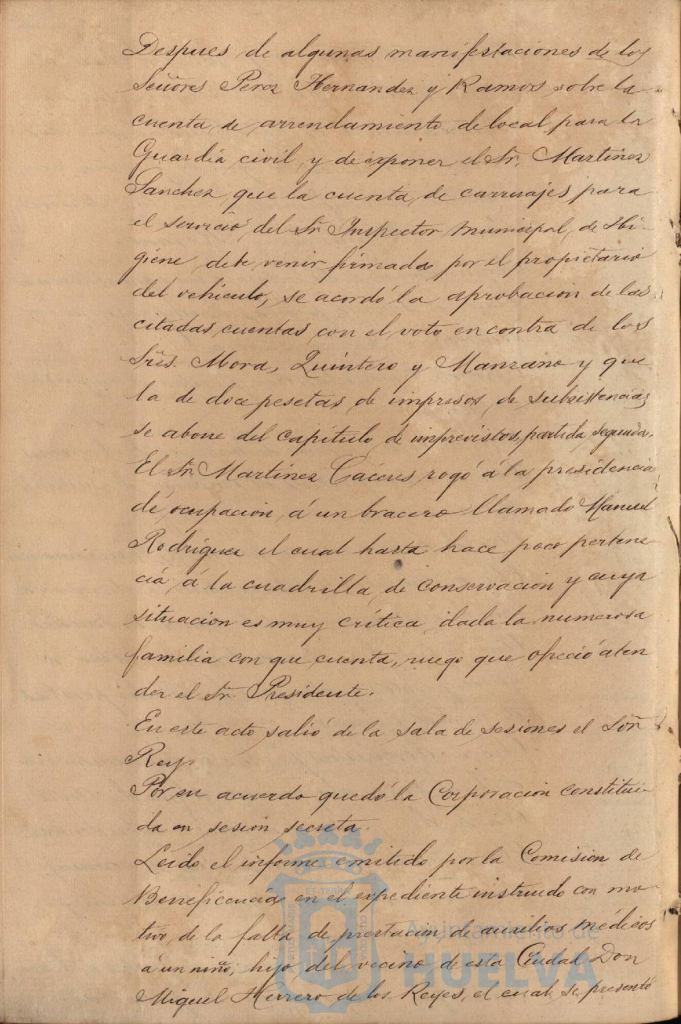 Despues de algunas manifestaciones de los
Señores Perez Hernandez y Ramos sobre la
cuenta de arrendamiento de local para la
Guardia civil y de exponer el Sr. Martinez
Sanchez que la cuenta de carruajes para
el servicio del Sr Inspector municipal de Hi-
giene debe venir firmada por el propietario
del vehículo, se acordó la aprobacion de las
citadas cuentas con el voto en contra de los
Sres. Mora, Quintero y Manzano y que
la de doce pesetas de impresos de subsistencias
se abone del capitulo de imprevistos, partida segunda.
El Sr. Martinez Cáceres rogó á la presidencia
dé ocupacion á un bracero llamado Manuel
Rodriguez el cual hasta hace poco pertene-
cia á la cuadrilla de conservacion y cuya
situacion es muy crítica dada la numerosa
familia con que cuenta, ruego que ofreció aten
der el Sr. Presidente.
En este acto salió de la sala de sesiones el Señor
Reyes
Por su acuerdo quedó la Corporacion constitui-
da en sesion secreta.
Leido el informe emitido por la Comision de
Beneficencia en el expediente instruido con mo-
tivo de la falta de prestacion de auxilios médicos
á un niño, hijo del vecino de esta Ciudad Don
Miguel Herrero de los Reyes, el cual se presentó
Ayuntamiento de
HUELVA